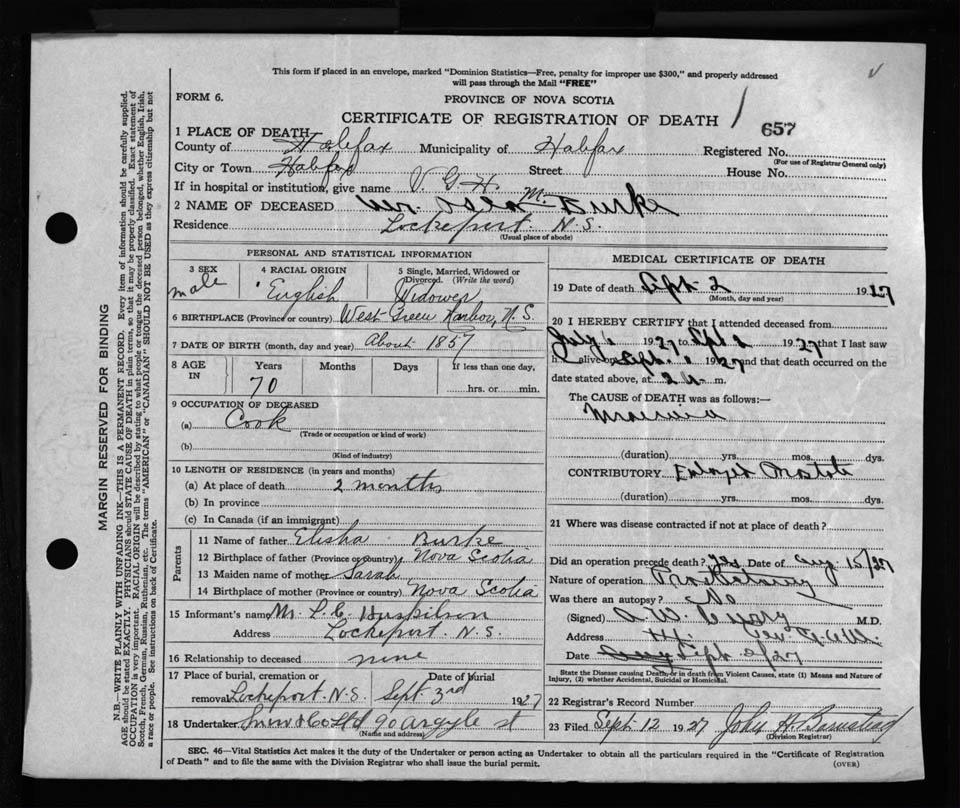 This form if placed in an envelope, marked "Dominion Statistics—Free, penalty for improper use $300," and properly addressed
will pass through the Mail "FREE"
FORM 6.
PROVINCE OF NOVA SCOTIA
CERTIFICATE OF REGISTRATION OF DEATH
657
1 PLACE OF DEATH
County of Halifax Municipality of Halifax Registered No.
(For use of Registrar General only)
City or Town Halifax Street House No.
If in hospital or institution, give name V. G. H.
2 NAME OF DECEASED Mr. M. Burke
Residence Lockeport N.S.
(Usual place of abode)
PERSONAL AND STATISTICAL INFORMATION
3 SEX male
4 RACIAL ORIGIN English
5 Single, Married, Widowed or Divorced. (Write the word) Widower
6 BIRTHPLACE (Province or country) West Green Harbor, N.S.
7 DATE OF BIRTH (month, day and year) About 1857
8 AGE IN Years Months Days If less than one day,
70 hrs. or min.
9 OCCUPATION OF DECEASED
(a) Cook
(Trade or occupation or kind of work)
(b)
(Kind of industry)
10 LENGTH OF RESIDENCE (in years and months)
(a) At place of death 2 months
(b) In province
(c) In Canada (if an immigrant)
Parents
11 Name of father Elisha Burke
12 Birthplace of father (Province or country) Nova Scotia
13 Maiden name of mother Sarah
14 Birthplace of mother (Province or country) Nova Scotia
15 Informant's name Mr. L. C.
Address Lockeport. N.S.
16 Relationship to deceased none
17 Place of burial, cremation or removal Lockeport N.S. Date of burial Sept 3rd 1927
18 Undertaker Snow & Co Ltd 90 Argyle st
(Name and address)
MEDICAL CERTIFICATE OF DEATH
19 Date of death Sept 2 1927
(Month, day and year)
20 I HEREBY CERTIFY that I attended deceased from
July 1927 to Sept 2 1927 that I last saw
h alive on Sept. 1 1927 and that death occurred on the
date stated above, at 2 a m.
The CAUSE OF DEATH was as follows:—
(duration) yrs. mos. dys.
CONTRIBUTORY
(duration) yrs. mos. dys.
21 Where was disease contracted if not at place of death?
Did an operation precede death? yes Date of Aug 15/27
Nature of operation
Was there an autopsy? No
(Signed) M.D.
Address
Date Sept 2/27
State the Disease causing Death, or in death from Violent Causes, state (1) Means and Nature of
Injury, (2) whether Accidental, Suicidal or Homicidal.
22 Registrar's Record Number
23 Filed Sept. 12 1927 John H. Barnstead
(Division Registrar)
SEC. 46—Vital Statistics Act makes it the duty of the Undertaker or person acting as Undertaker to obtain all the particulars required in the "Certificate of Registration
of Death" and to file the same with the Division Registrar who shall issue the burial permit.
(OVER)
MARGIN RESERVED FOR BINDING
N.B.—WRITE PLAINLY WITH UNFADING INK—THIS IS A PERMANENT RECORD. Every item of information should be carefully supplied.
AGE should be stated EXACTLY. PHYSICIANS should STATE CAUSE OF DEATH in plain terms, so that it may be properly classified. Exact statement of
OCCUPATION is very important. RACIAL ORIGIN will be described by stating to what people or tongue the deceased person belonged, whether English, Irish,
Scotch, French, German, Russian, Ruthenian, etc. The terms "AMERICAN" or "CANADIAN" SHOULD NOT BE USED as they express citizenship but not
a race or people. See instructions on back of Certificate.